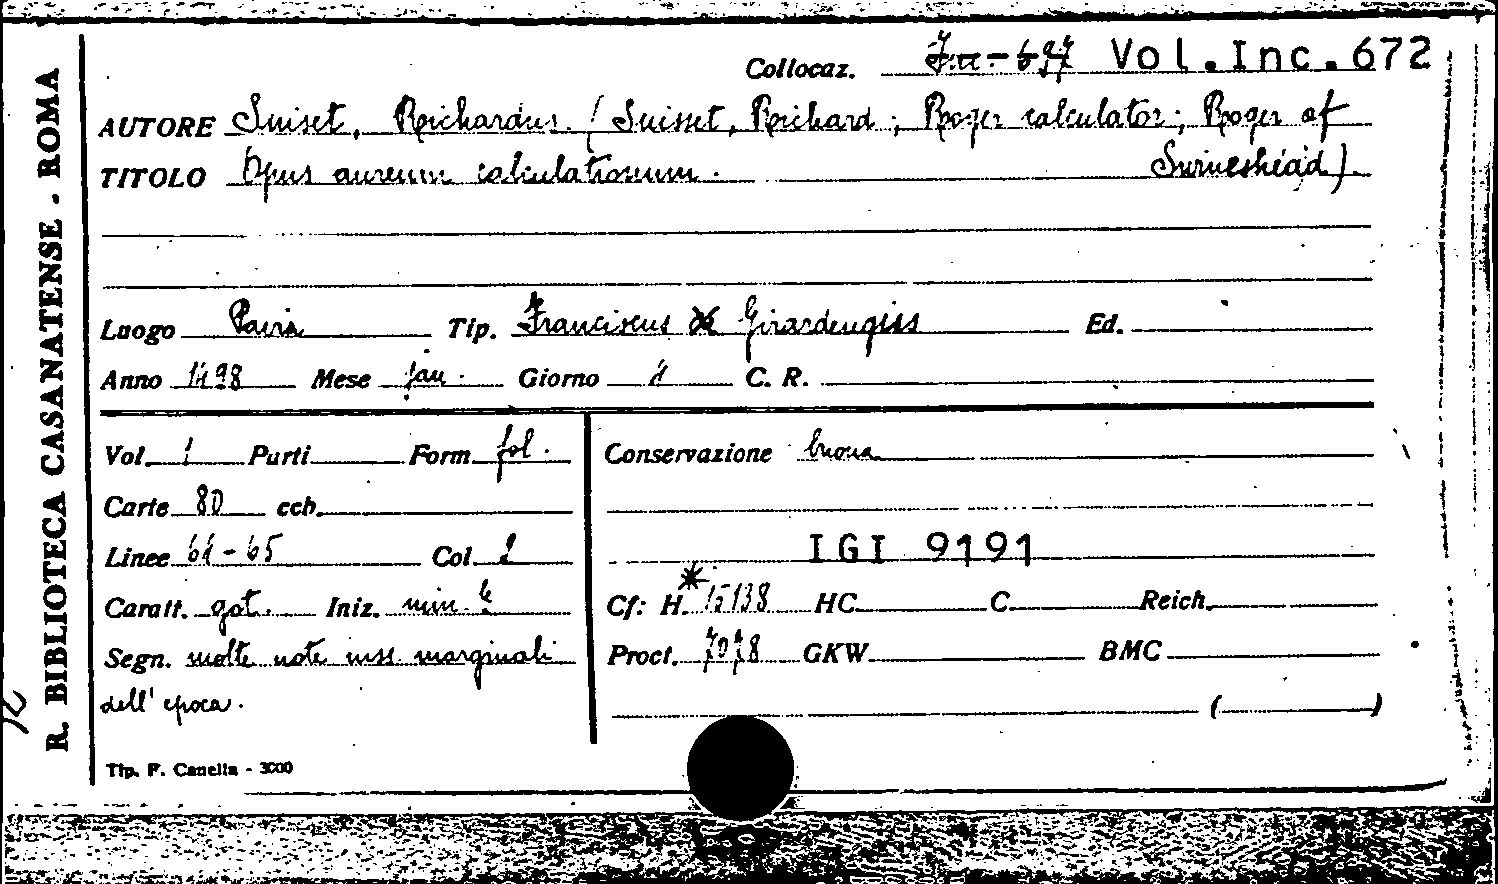 R. BIBLIOTECA CASANATENSE - ROMA
Collocaz. Inc. 697 Vol.Inc.672
AUTORE Suiset, Richardus. (Suisset, Richard; Roger calculator; Roger of
TITOLO Opus aureum calculationum. Swineshead).
Luogo Pavia Tip. Franciscus de Girardengiis Ed.
Anno 1498 Mese jan. Giorno C. R.
Vol. 1 Parti Form. fol.
Carte 80 ccb.
Linee 64-65 Col. 2
Caratt. got. Iniz. min.
Segn. molte note mss. marginali
dell'epoca.
Conservazione buona
IGI 9191
Cf: H.* 15138 HC. C. Reich.
Proct. 7078 GKW. BMC
( )
Tip. F. Canella - 3000